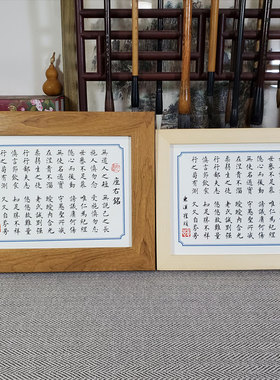 座右銘
無道人之短 無說己之長
施人慎勿念 受施慎勿忘
世譽不足慕 唯仁為紀綱
隱心而後動 謗議庸何傷
無使名過實 守愚聖所臧
在涅貴不淄 曖曖內含光
柔弱生之徒 老氏誡剛強
行行鄙夫志 悠悠故難量
慎言節飲食 知足勝不祥
行之苟有恆 久久自芬芳
世譽不足慕 唯仁為紀綱
隱心而後動 謗議庸何傷
無使名過實 守愚聖所臧
在涅貴不淄 曖曖內含光
柔弱生之徒 老氏誡剛強
行行鄙夫志 悠悠故難量
慎言節飲食 知足勝不祥
行之苟有恆 久久自芬芳
東漢崔瑗